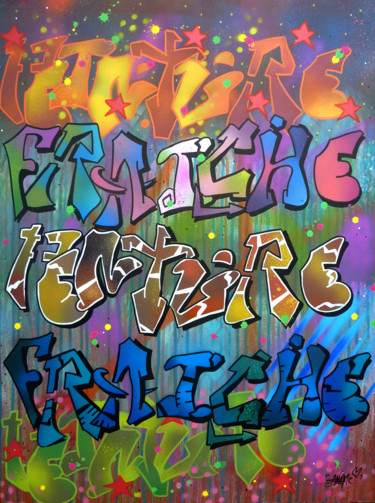 PEINTURE
FRAICHE
PEINTURE
FRAICHE
PEINTURE